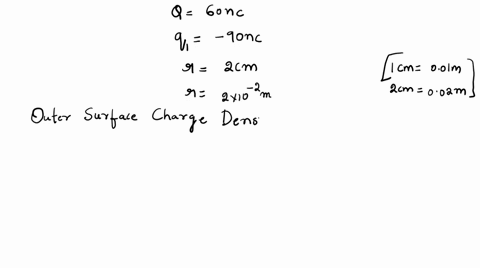 Q = 60nc
q1 = -90nc
r = 2cm
r = 2x10^-2 m
[1cm = 0.01m
2cm = 0.02m]
Outer Surface Charge Dens